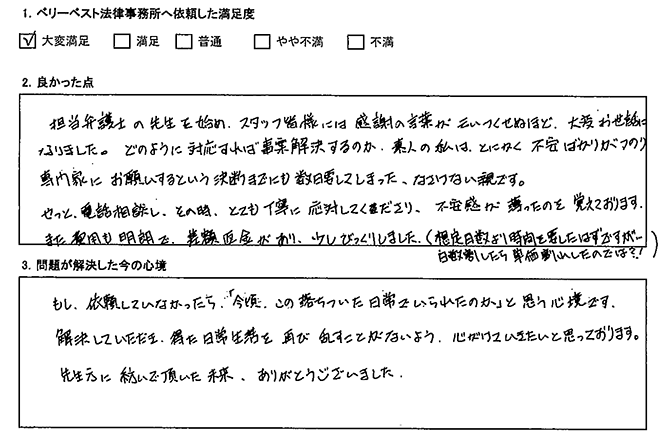 1. ベリーベスト法律事務所へ依頼した満足度
☑ 大変満足 □ 満足 □ 普通 □ やや不満 □ 不満
2. 良かった点
担当弁護士の先生を始め、スタッフ皆様には感謝の言葉が云いつくせぬほど、大変お世話に
なりました。どのように対応すれば事案解決するのか、素人の私は、とにかく不安ばかりがつのり
専門家にお願いするという決断までにも数日要してしまった、なさけない親です。
やっと、電話相談し、その時、とても丁寧に応対してくださり、不安感が薄ったのを覚えております。
また費用も明朗で、差額返金があり、少しびっくりしました。(想定日数より時間を要したはずですが…
日数割したら単価割れしたのでは?!)
3. 問題が解決した今の心境
もし、依頼していなかったら、「今頃、この落ちついた日常でいられたのか」と思う心境です。
解決していただき、得た日常生活を再び乱すことがないよう、心がけていきたいと思っております。
先生方に紡いで頂いた未来、ありがとうございました。